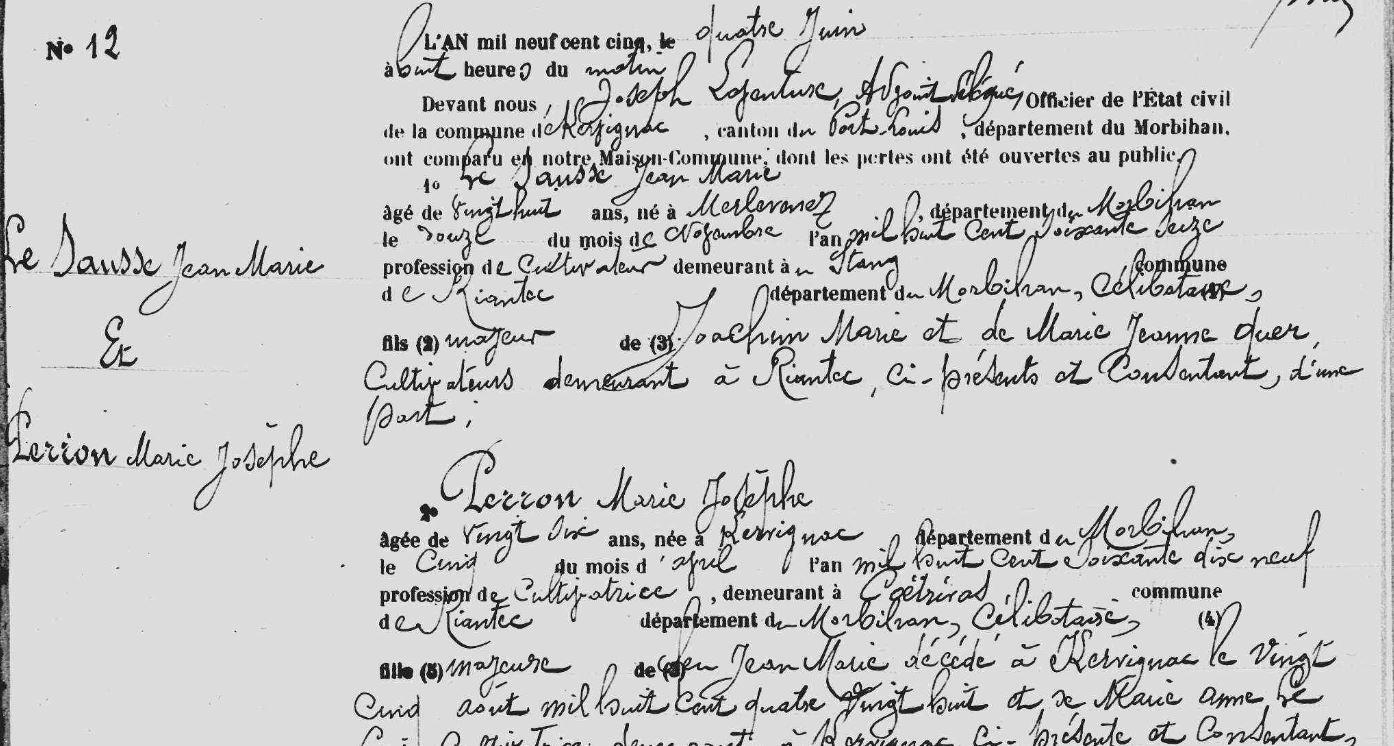 N° 12
L'AN mil neuf cent cinq, le quatre Juin
à huit heures du matin
Devant nous, Joseph Lofenture, Adjoint délégué, Officier de l'État civil
de la commune de Kervignac, canton du Port-Louis, département du Morbihan,
ont comparu en notre Maison-Commune, dont les portes ont été ouvertes au public,
1° Le Sausse Jean Marie
âgé de vingt huit ans, né à Merlevenez, département du Morbihan
le douze du mois de Novembre l'an mil huit cent soixante seize
profession de Cultivateur demeurant à u Stang commune
de Riantec département du Morbihan, Célibataire,
fils (2) majeur de (3) Joachim Marie et de Marie Jeanne Quer,
Cultivateurs demeurant à Riantec, ci-présents et Consentant, d'une
part;
Le Sausse Jean Marie
Et
Perron Marie Josèphe
2° Perron Marie Josèphe
âgée de vingt six ans, née à Kervignac département du Morbihan,
le Cinq du mois d'april l'an mil huit cent soixante dix neuf
profession de Cultivatrice, demeurant à commune
de Riantec département du Morbihan, Célibataire, (4)
fille (5) majeure de (6) feu Jean Marie décédé à Kervignac le vingt
Cinq août mil huit cent quatre vingt huit et de Marie anne Le
Cultivatrice demeurant à Kervignac ci-présente et Consentant,